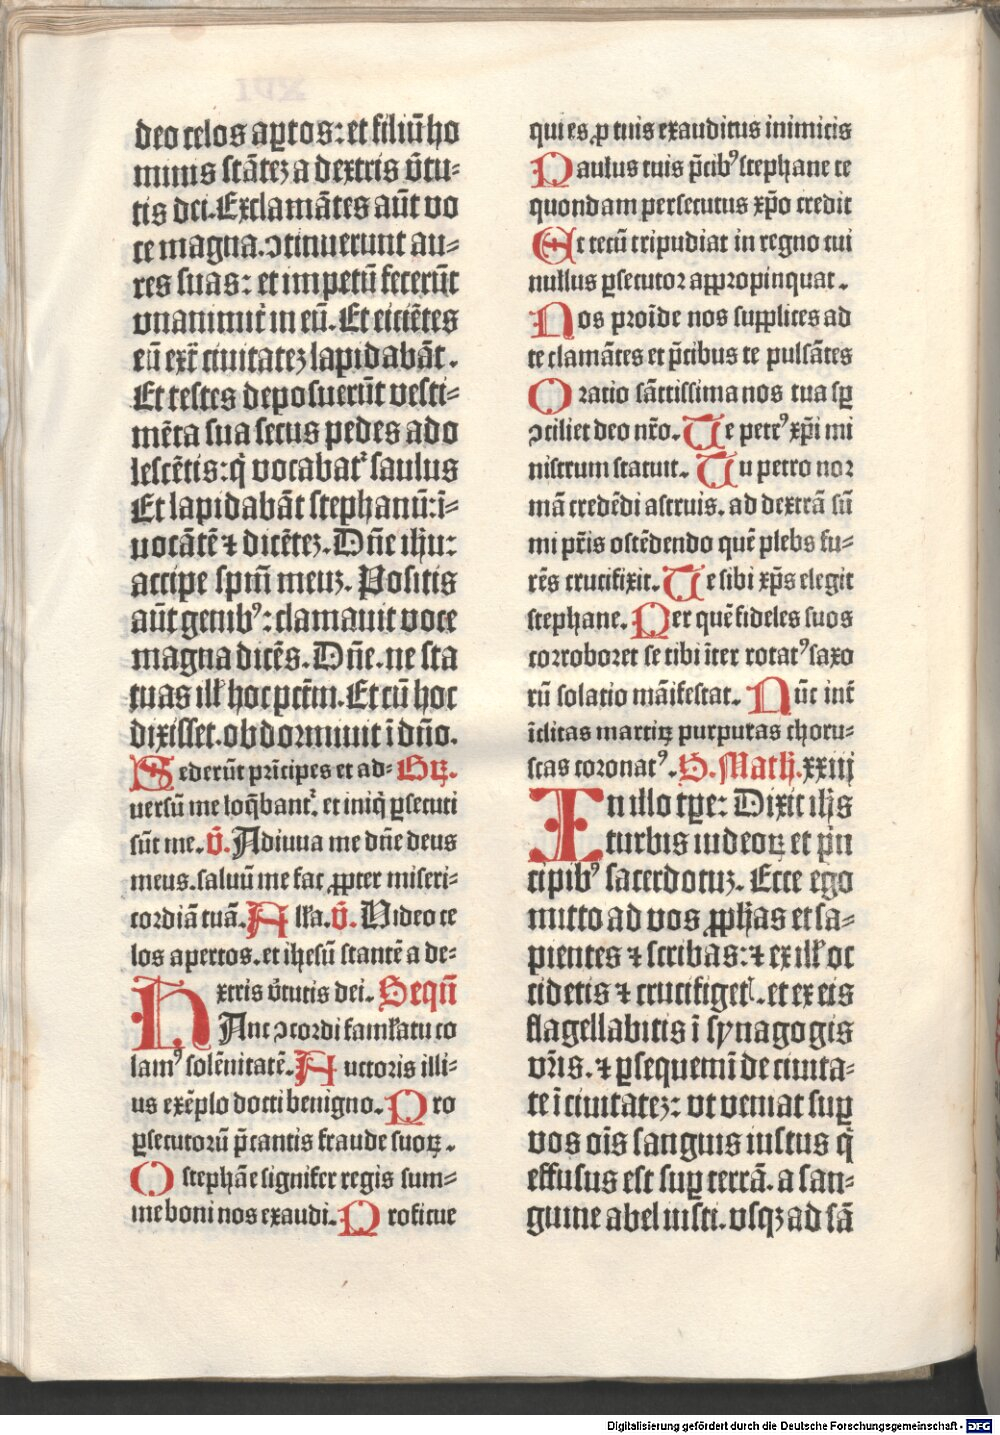 deo celos aꝑtos: et filiū ho
minis stātez a dextris v̄tu-
tis dei. Exclamātes aūt vo
ce magna. ↄtinuerunt au-
res suas: et impetū fecerūt
vnanimit̉ in eū. Et eiciētes
eū ext̄ ciuitatez lapidabāt.
Et testes deposuerūt vesti-
mēta sua secus pedes ado
lescētis: q̄ vocabat᷑ saulus
Et lapidabāt stephanū: ī-
uocātē ⁊ dicētez. Dn̄e ih̄u:
accipe sp̄m meuz. Positis
aūt genibꝰ: clamauit voce
magna dicēs. Dn̄e. ne sta
tuas ill̉ hoc pctm̄. Et cū hoc
dixisset. obdormiuit ī dn̄o.
Sederūt prīcipes et ad- Gꝝ.
uersū me loq̄bant᷑. et iniq̄ ꝑsecuti
sūt me. v̄. Adiuua me dn̄e deus
meus. saluū me fac ꝓpter miseri-
cordiā tuā. Alla. v̄. Video ce
los apertos. et ihesū stantē a de-
xtris v̄tutis dei. Sequn̄
HAnc ↄcordi faml̉atu co
lamꝰ solēnitatē. Auctoris illi-
us exēplo docti benigno. Pro
ꝑsecutorū p̄cantis fraude suoꝝ.
O stephāe signifer regis sum-
me boni nos exaudi. Proficue
qui es ꝓ tuis exauditus inimicis
Paulus tuis p̄cibꝰ stephane te
quondam persecutus xp̄o credit
Et tecū tripudiat in regno cui
nullus ꝑsecutor appropinquat.
Nos proīde nos supplices ad
te clamātes et p̄cibus te pulsātes
Oratio sāctissima nos tua sꝑ
ↄciliet deo nr̄o. Te petrꝰ xp̄i mi
nistrum statuit. Tu petro nor
mā credēdi astruis. ad dextrā sū
mi pr̄is ostēdendo quē plebs fu-
rēs crucifixit. Te sibi xp̄s elegit
stephane. Per quē fideles suos
corroboret se tibi īter rotatꝰ saxo
rū solatio māifestat. Nūc int̄
īclitas martiꝝ purpuras choru-
scas coronatꝰ. S. Math. xxiij
In illo tꝑe: Dixit ih̄s
turbis iudeoꝝ et prī
cipibꝰ sacerdotuz. Ecce ego
mitto ad vos ꝓph̄as et sa-
pientes ⁊ scribas: ⁊ ex ill̉ oc
cidetis ⁊ crucifiget᷑. et ex eis
flagellabitis ī synagogis
vr̄is. ⁊ ꝑsequemī de ciuita-
te ī ciuitatez: vt veniat suꝑ
vos oīs sanguis iustus q̄
effusus est suꝑ terrā. a san-
guine abel iusti. vsqꝫ ad sā
Digitalisierung gefördert durch die Deutsche Forschungsgemeinschaft - DFG